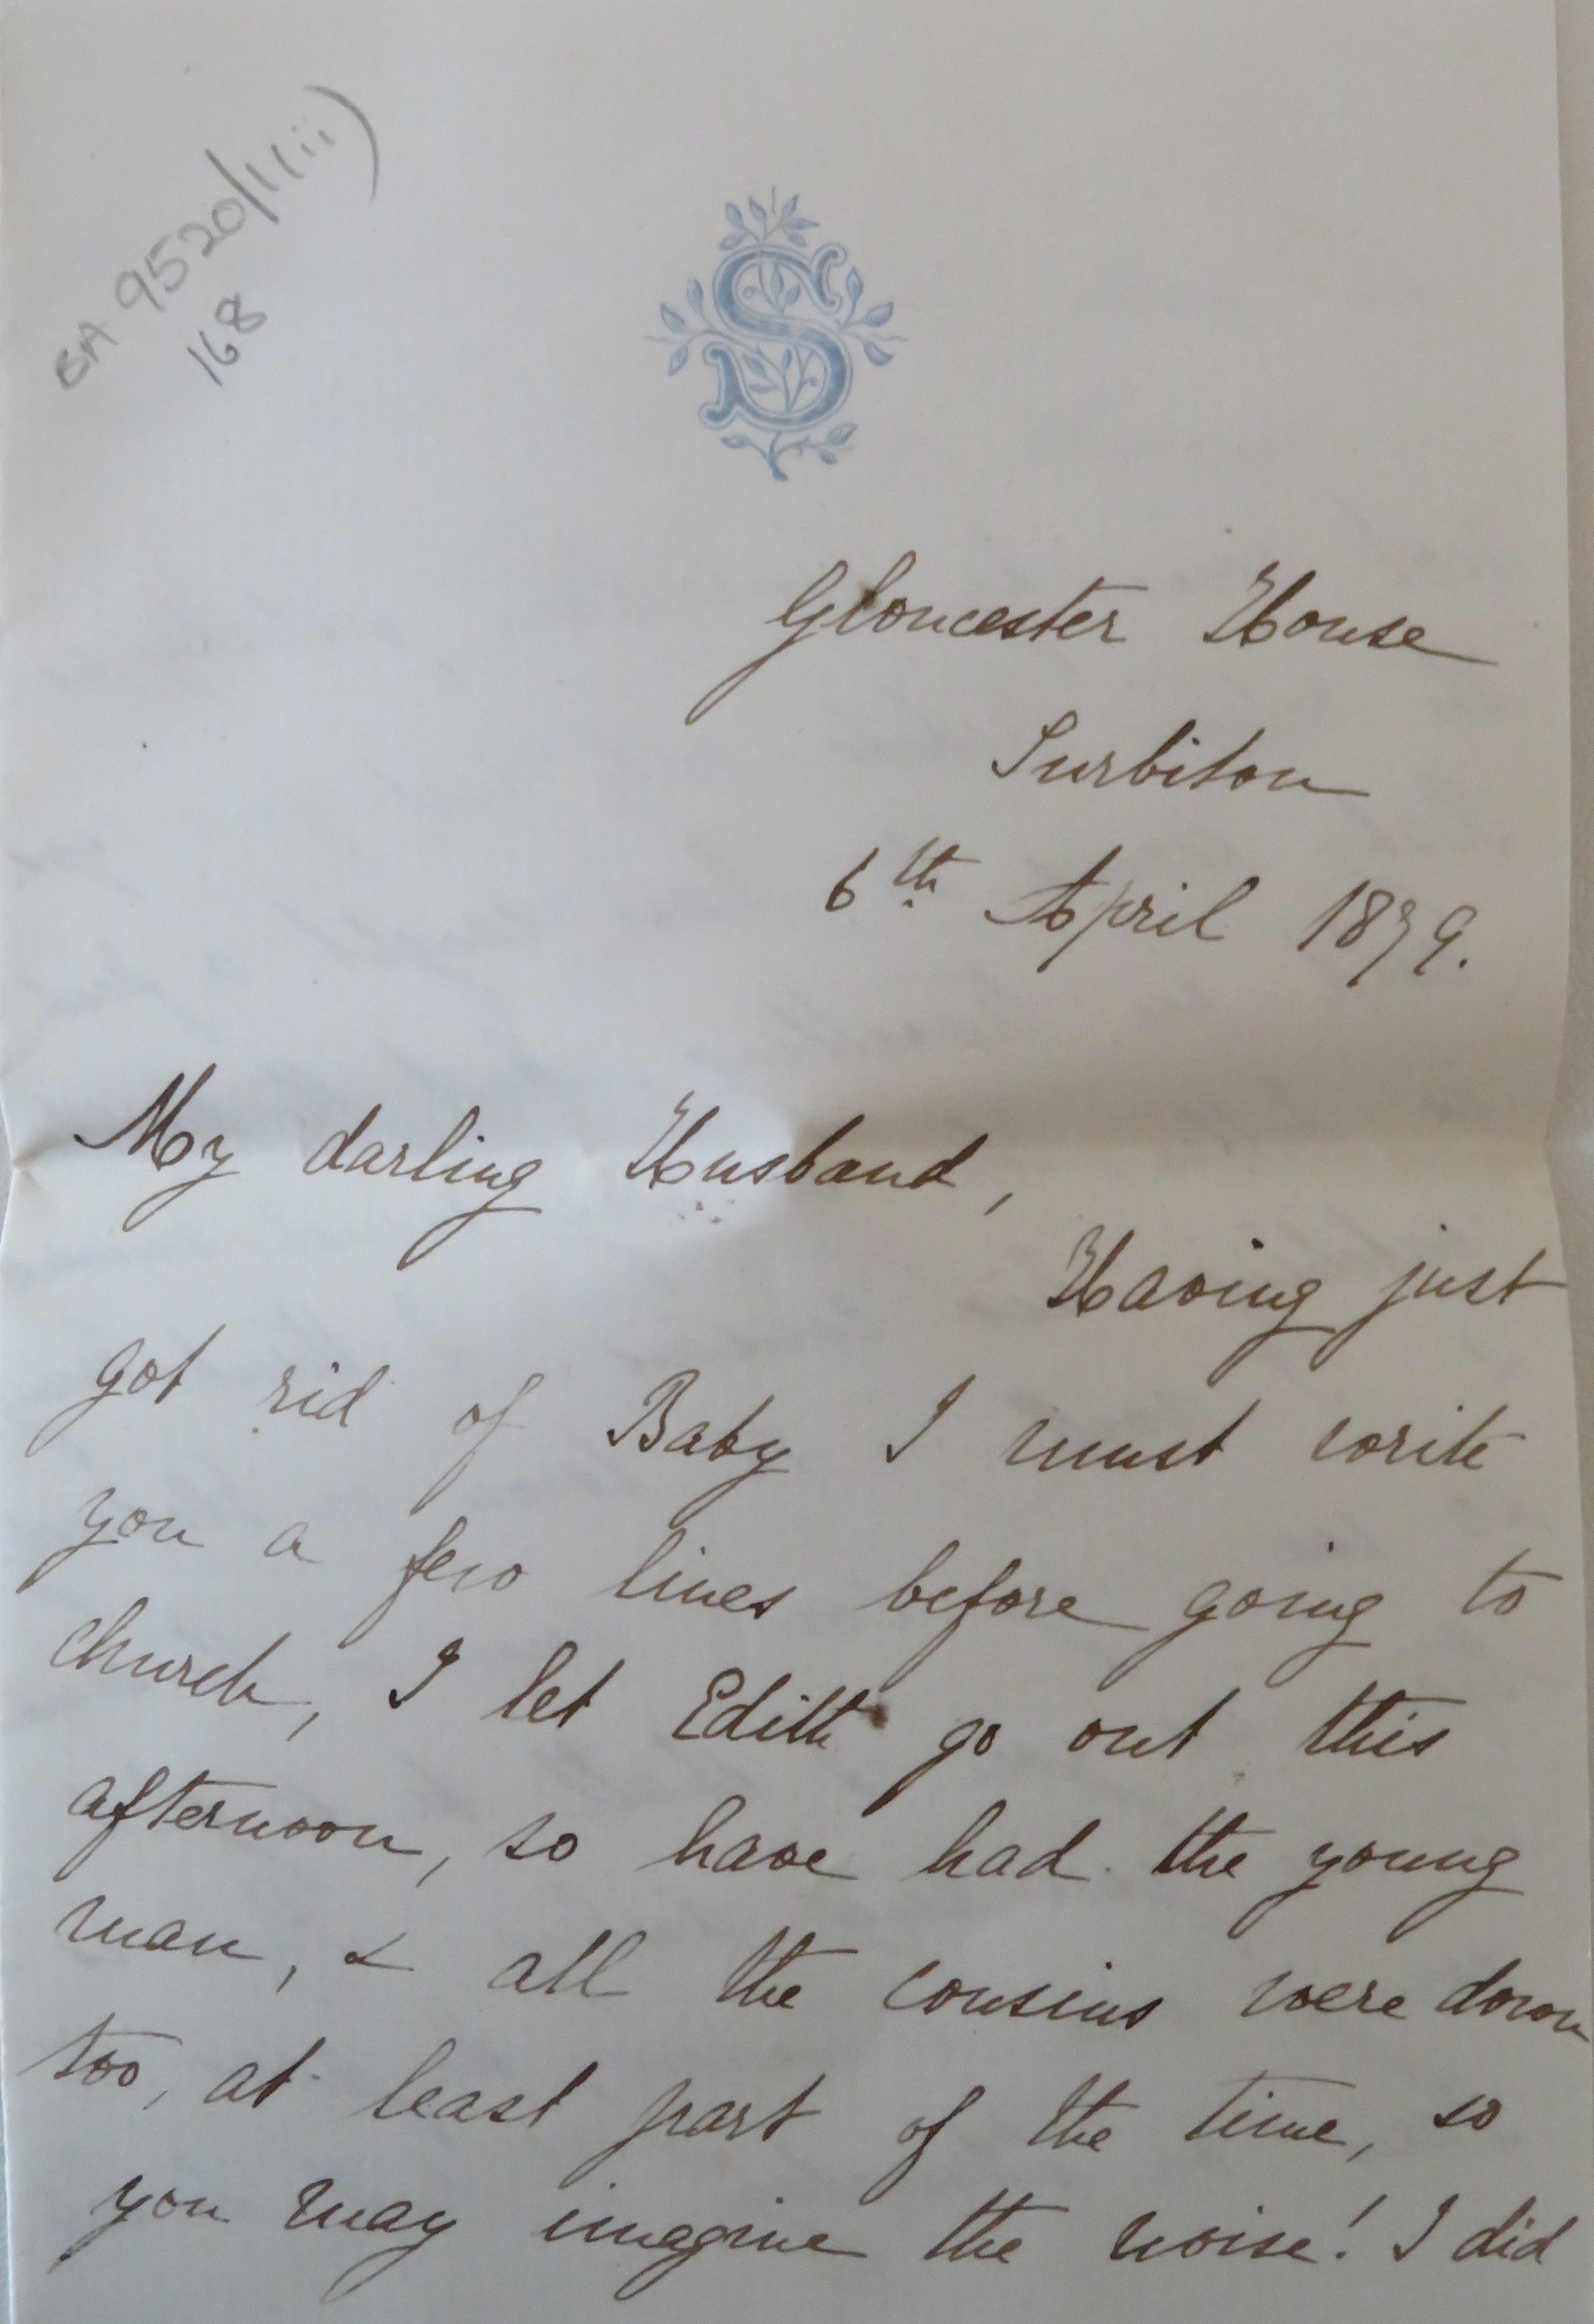 BA 9520/1(ii)
168
S
Gloucester House
Surbiton
6th April 1879.
My darling Husband,
Having just
got rid of Baby I must write
you a few lines before going to
church, I let Edith go out this
afternoon, so have had the young
man, & all the cousins were down
too, at least part of the time, so
you may imagine the noise! I did